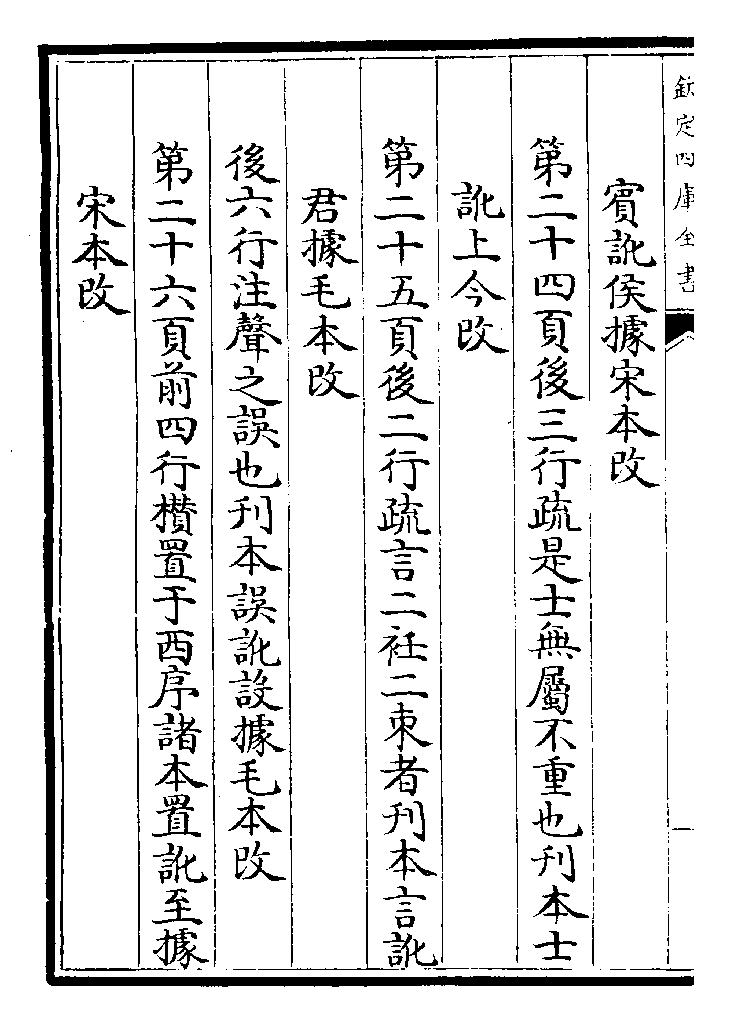 欽定四庫全書
賔訛侯據宋本改
第二十四頁後三行疏是士無屬不重也刊本士
訛上今改
第二十五頁後二行疏言二衽二束者刊本言訛
君據毛本改
後六行注聲之誤也刊本誤訛設據毛本改
第二十六頁前四行欑置于西序諸本置訛至據
宋本改